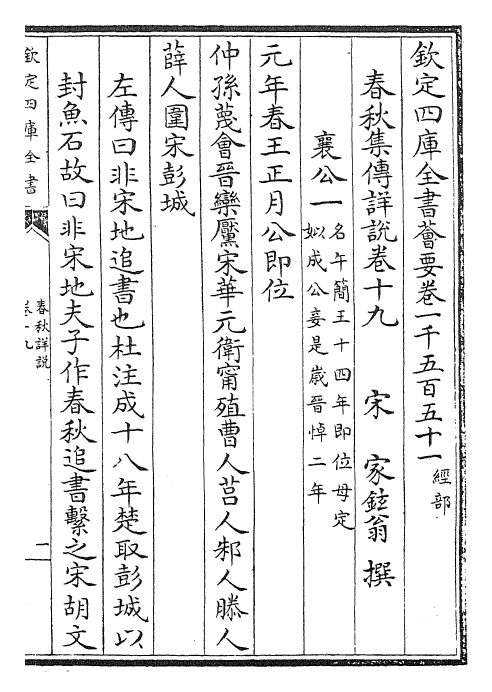 欽定四庫全書薈要卷一千五百五十一 經部
春秋集傳詳說卷十九 宋 家鉉翁 撰
襄公一
名午簡王十四年即位母定
姒成公妾是歲晉悼二年
元年春王正月公即位
仲孫蔑會晉欒黶宋華元衛甯殖曹人莒人邾人滕人
薛人圍宋彭城
左傳曰非宋地追書也杜注成十八年楚取彭城以
封魚石故曰非宋地夫子作春秋追書繫之宋胡文
欽定四庫全書
春秋詳說
卷十九
一